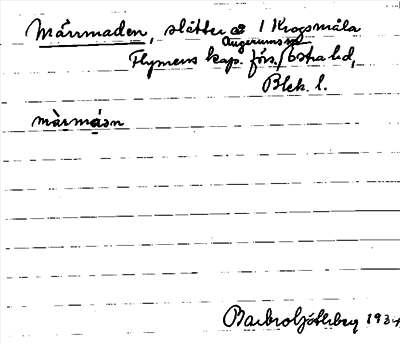 Märrmaden, slåtter å 1 Krogsmåla
Augerums sn
Flymens kap. förs. / Östra hd,
Blek. l.
màrmáən
Barbro Ljóthberg 193